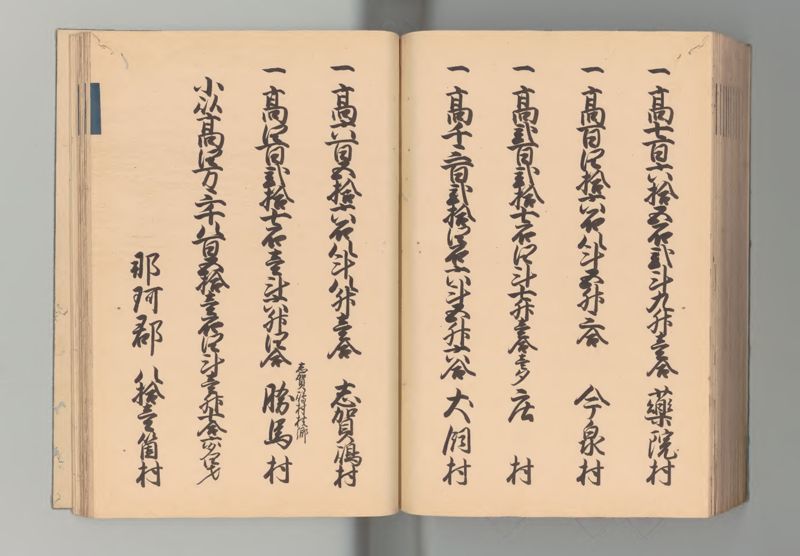 一高七百六拾五石弐斗九升壱合 藥院村
一高百四拾六石八斗五升六合 今泉村
一高弐百弐拾七石四斗七升壱合壱夕 庄村
一高千三百弐拾四石六斗五升六合 大洞村
一高六百五拾六石八斗八升壱合 志賀嶋村
一高四百弐拾七石壱斗八升四合 勝馬村
志賀嶋村枝郷
小以高四万六千八百五拾壱石四斗壱升
那珂郡 八拾壱箇村